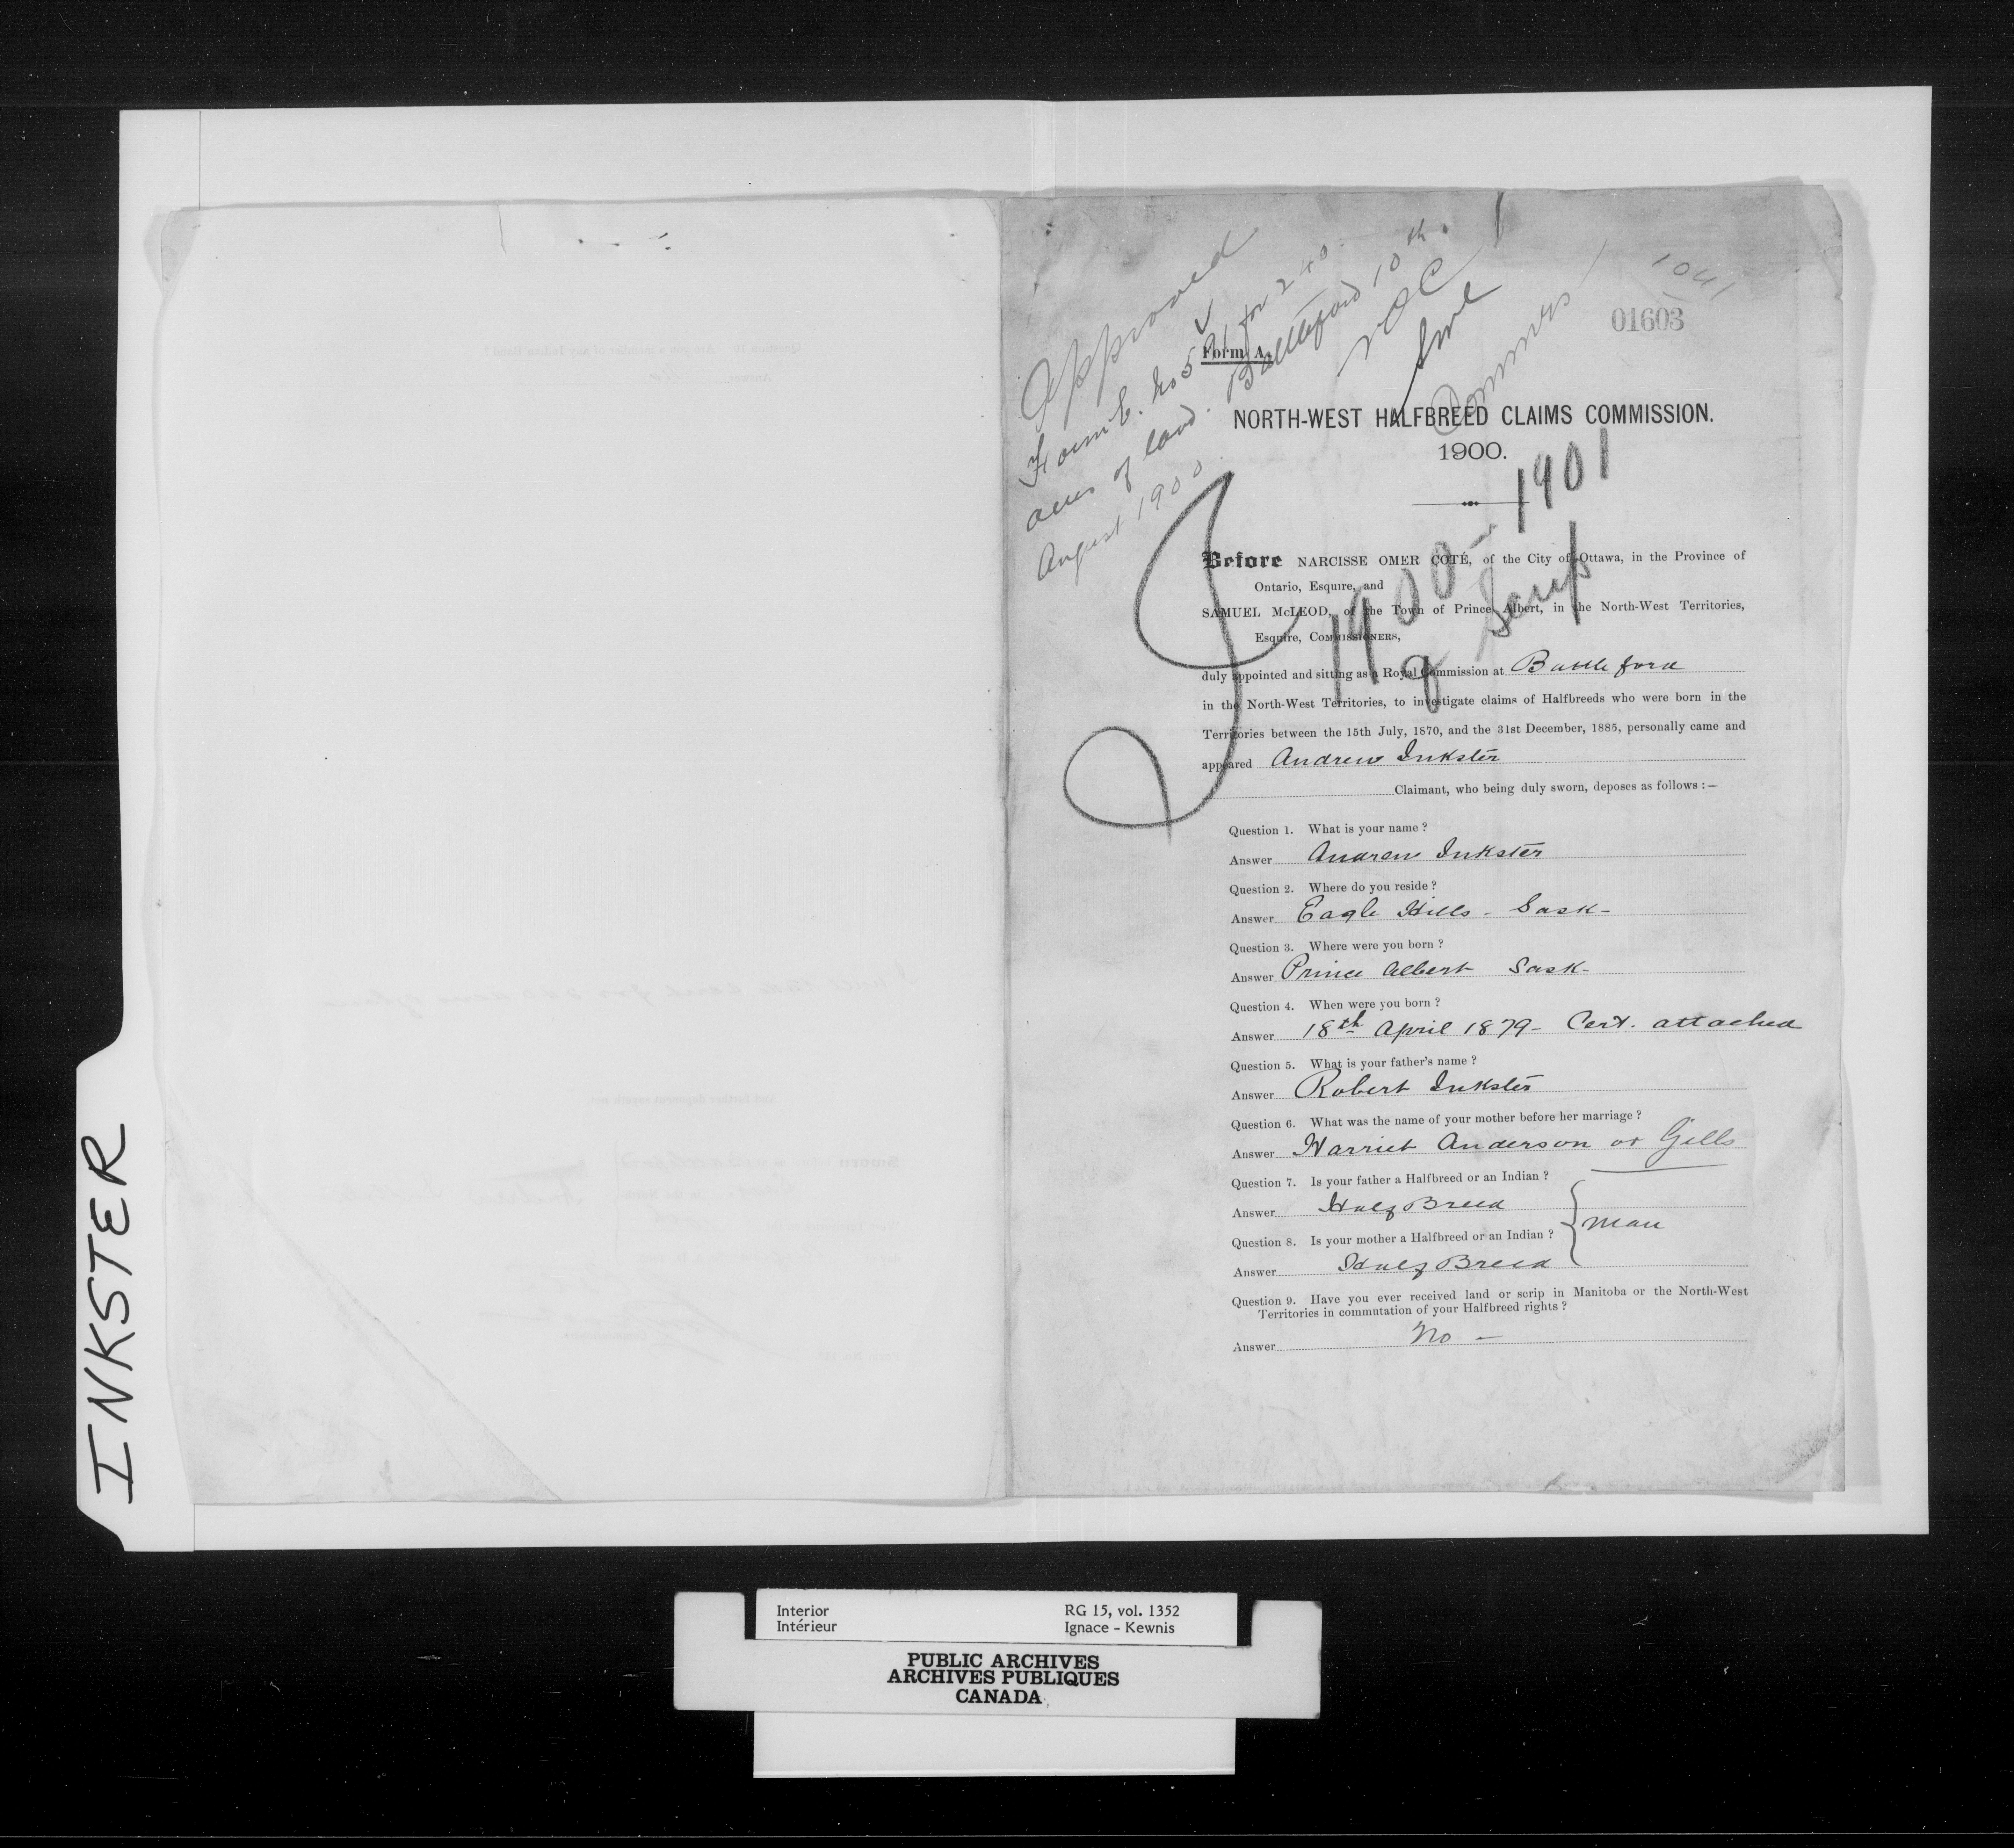 INKSTER
Approved
Form E. No 591 for 240
acres of land. Battleford 10th
August 1900
NOC
SML
1041
01603
Form A.
NORTH-WEST HALFBREED CLAIMS COMMISSION.
1900.
1900-1901
Scrip
Before NARCISSE OMER COTÉ, of the City of Ottawa, in the Province of
Ontario, Esquire, and
SAMUEL McLEOD, of the Town of Prince Albert, in the North-West Territories,
Esquire, COMMISSIONERS,
duly appointed and sitting as a Royal Commission at Battleford
in the North-West Territories, to investigate claims of Halfbreeds who were born in the
Territories between the 15th July, 1870, and the 31st December, 1885, personally came and
appeared Andrew Inkster
Claimant, who being duly sworn, deposes as follows :—
Question 1. What is your name ?
Answer Andrew Inkster
Question 2. Where do you reside ?
Answer Eagle Hills - Sask -
Question 3. Where were you born ?
Answer Prince Albert Sask -
Question 4. When were you born ?
Answer 18th April 1879 - Cert. attached
Question 5. What is your father's name ?
Answer Robert Inkster
Question 6. What was the name of your mother before her marriage ?
Answer Harriet Anderson or Gills
Question 7. Is your father a Halfbreed or an Indian ?
Answer Half Breed
Man
Question 8. Is your mother a Halfbreed or an Indian ?
Answer Half Breed
Question 9. Have you ever received land or scrip in Manitoba or the North-West
Territories in commutation of your Halfbreed rights ?
Answer No -
Interior RG 15, vol. 1352
Intérieur Ignace - Kewnis
PUBLIC ARCHIVES
ARCHIVES PUBLIQUES
CANADA